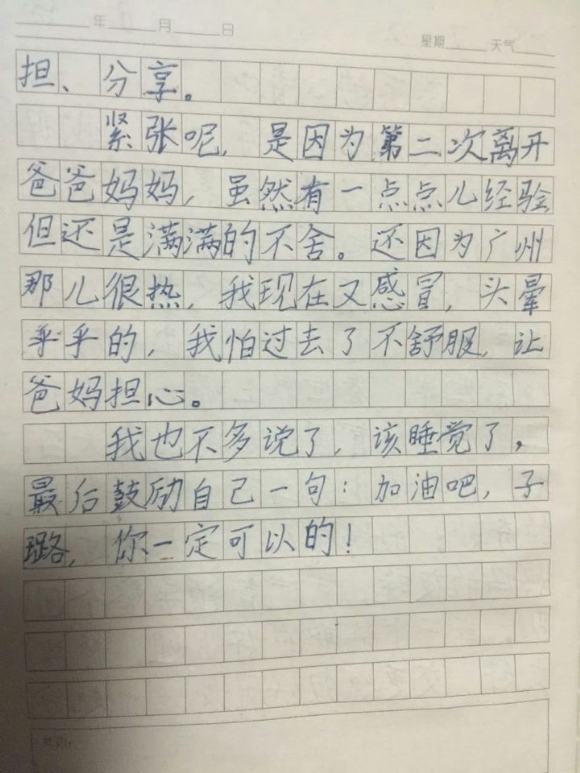 年 月 日
星期 天气
担、分享。
紧张呢，是因为第二次离开
爸爸妈妈，虽然有一点点儿经验
但还是满满的不舍。还因为广州
那儿很热，我现在又感冒，头晕
乎乎的，我怕过去了不舒服，让
爸妈担心。
我也不多说了，该睡觉了，
最后鼓励自己一句：加油吧，子
璐，你一定可以的！